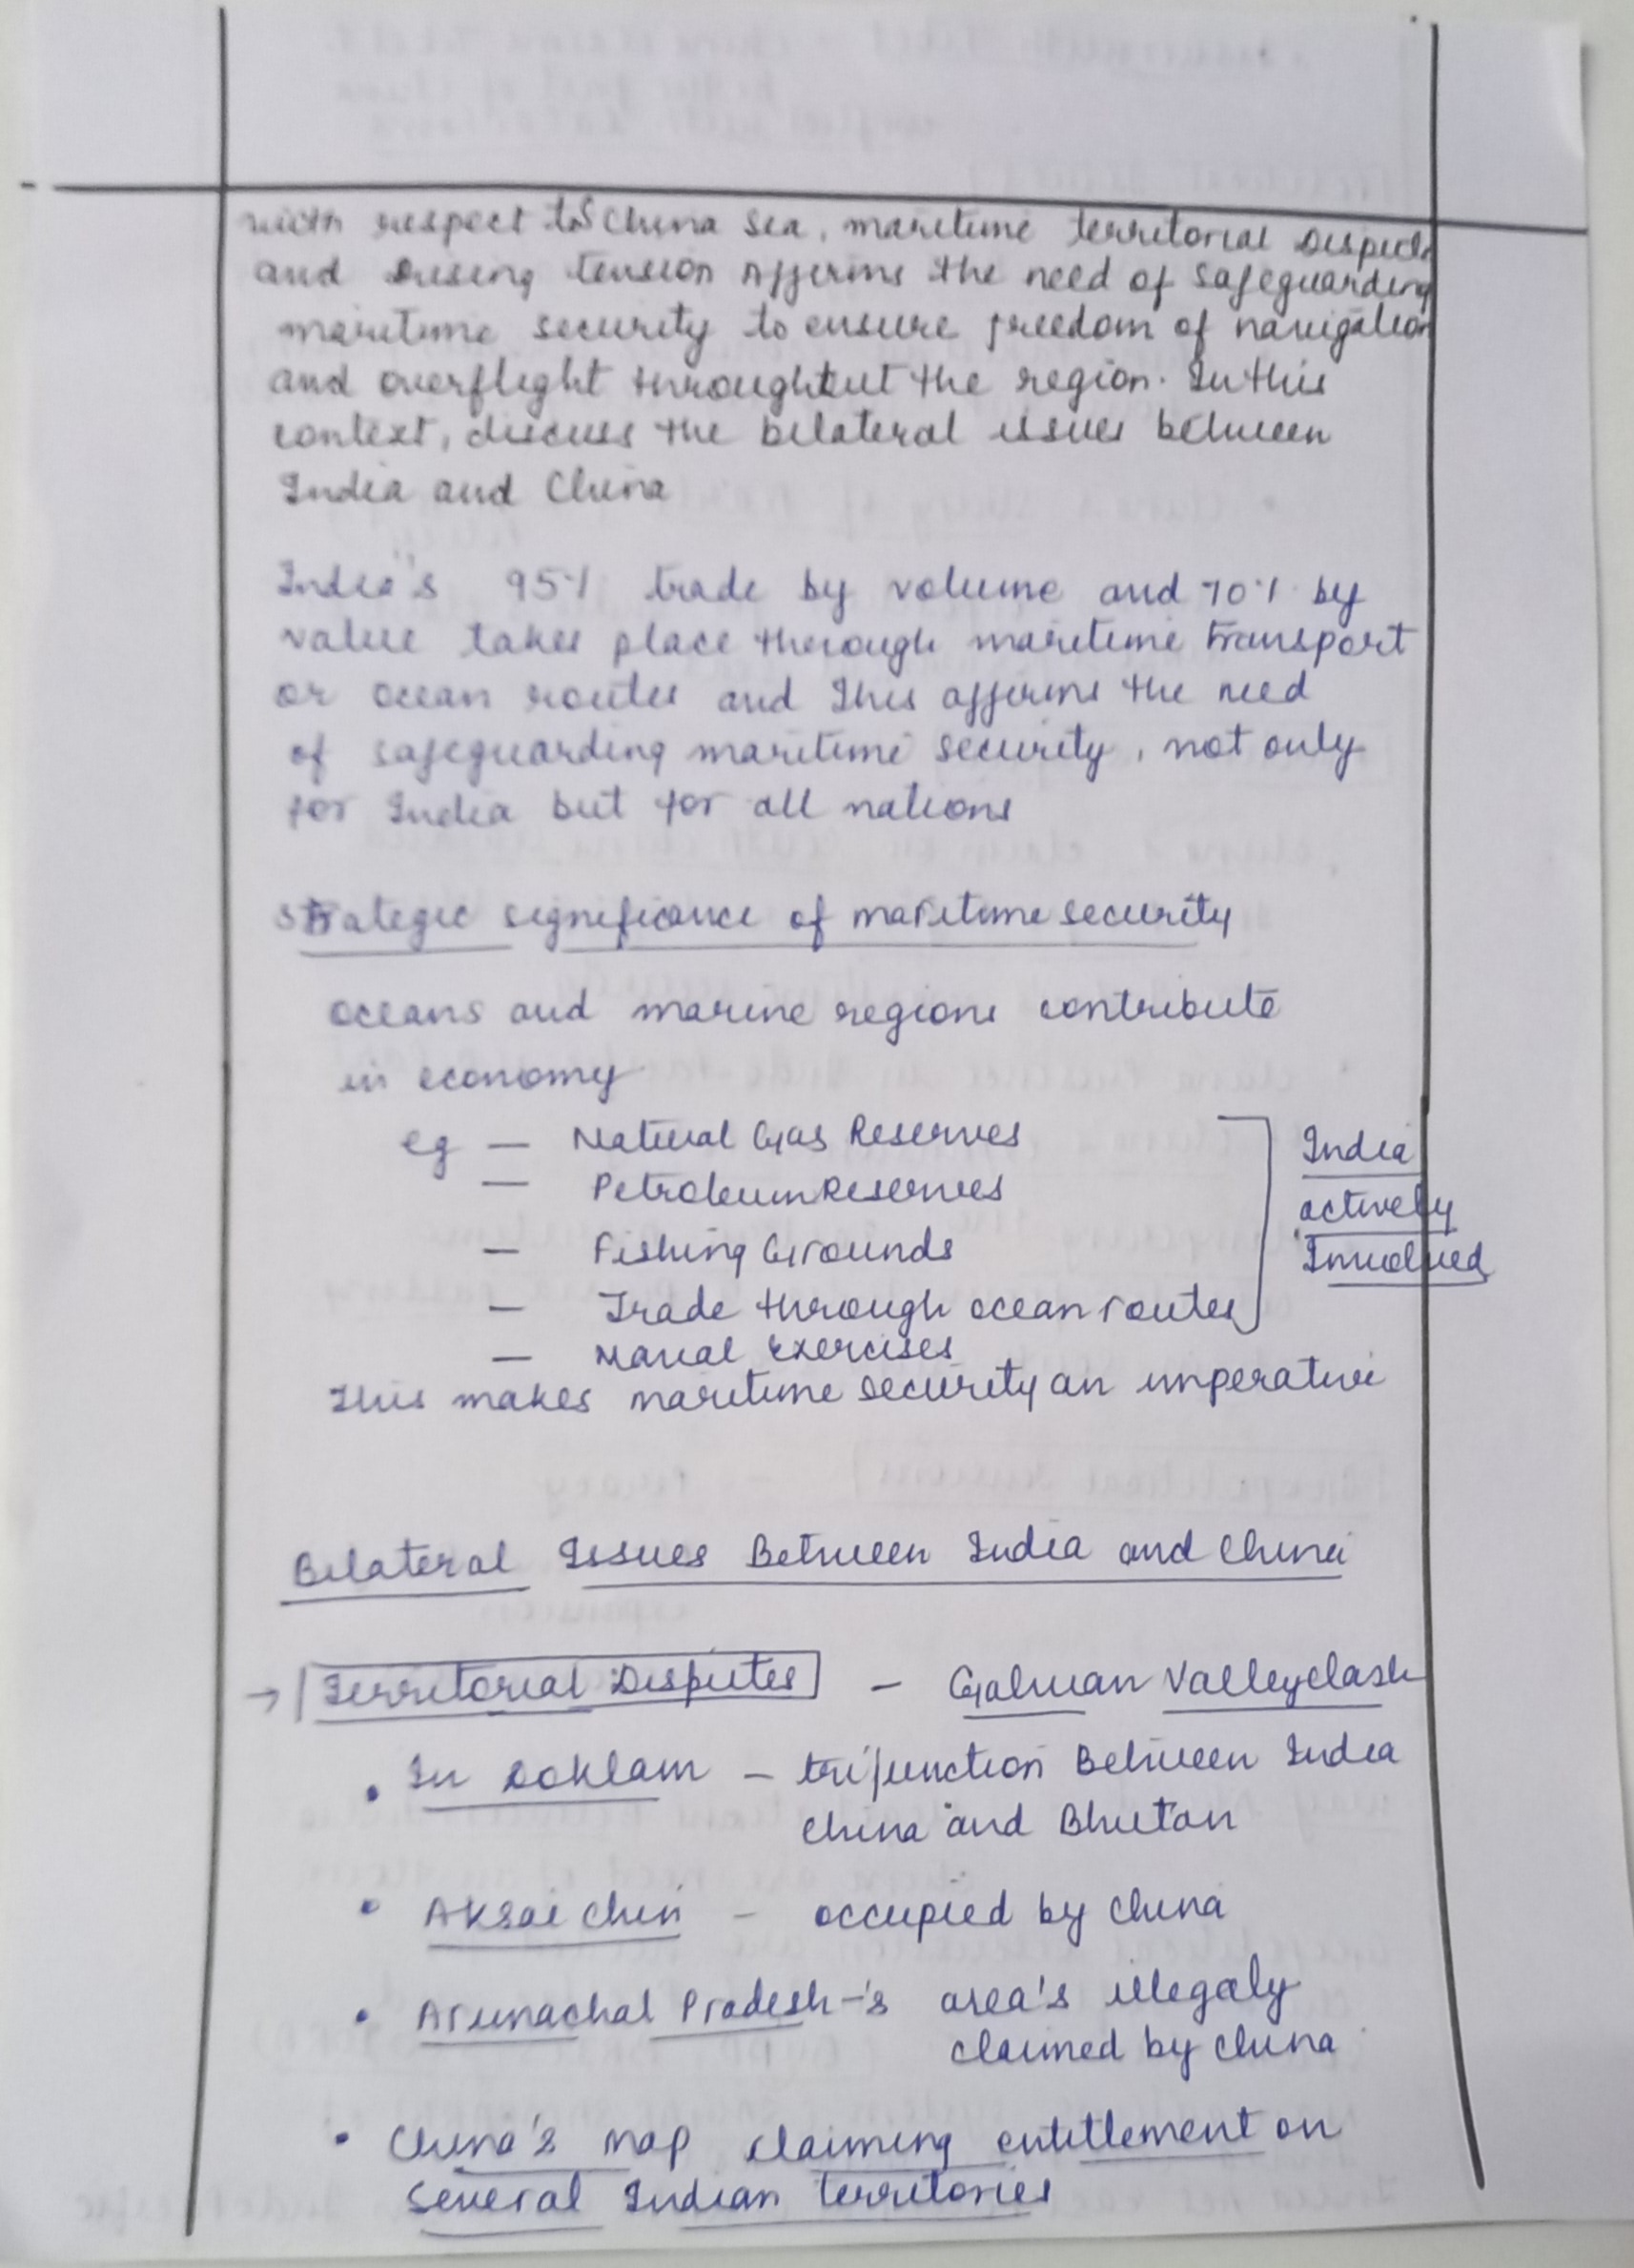 with respect to S China Sea, maritime territorial Disputes
and Rising tension Affirms the need of safeguarding
maritime security to ensure freedom of navigation
and overflight throughout the region. In this
context, discuss the bilateral issues between
India and China
India's 95% trade by volume and 70% by
value takes place through maritime transport
or ocean routes and this affirms the need
of safeguarding maritime security, not only
for India but for all nations
Strategic significance of maritime security
Oceans and marine regions contribute
in economy
eg — Natural Gas Reserves
— Petroleum Reserves
— Fishing Grounds
— Trade through ocean routes
— Naval Exercises
India
actively
Involved
This makes maritime security an imperative
Bilateral Issues Between India and China
→ Territorial Disputes — Galwan Valley clash
• In Doklam — trijunction Between India
China and Bhutan
• Aksai Chin — occupied by China
• Arunachal Pradesh-'s area's illegaly
claimed by China
• China's map claiming entitlement on
several Indian territories